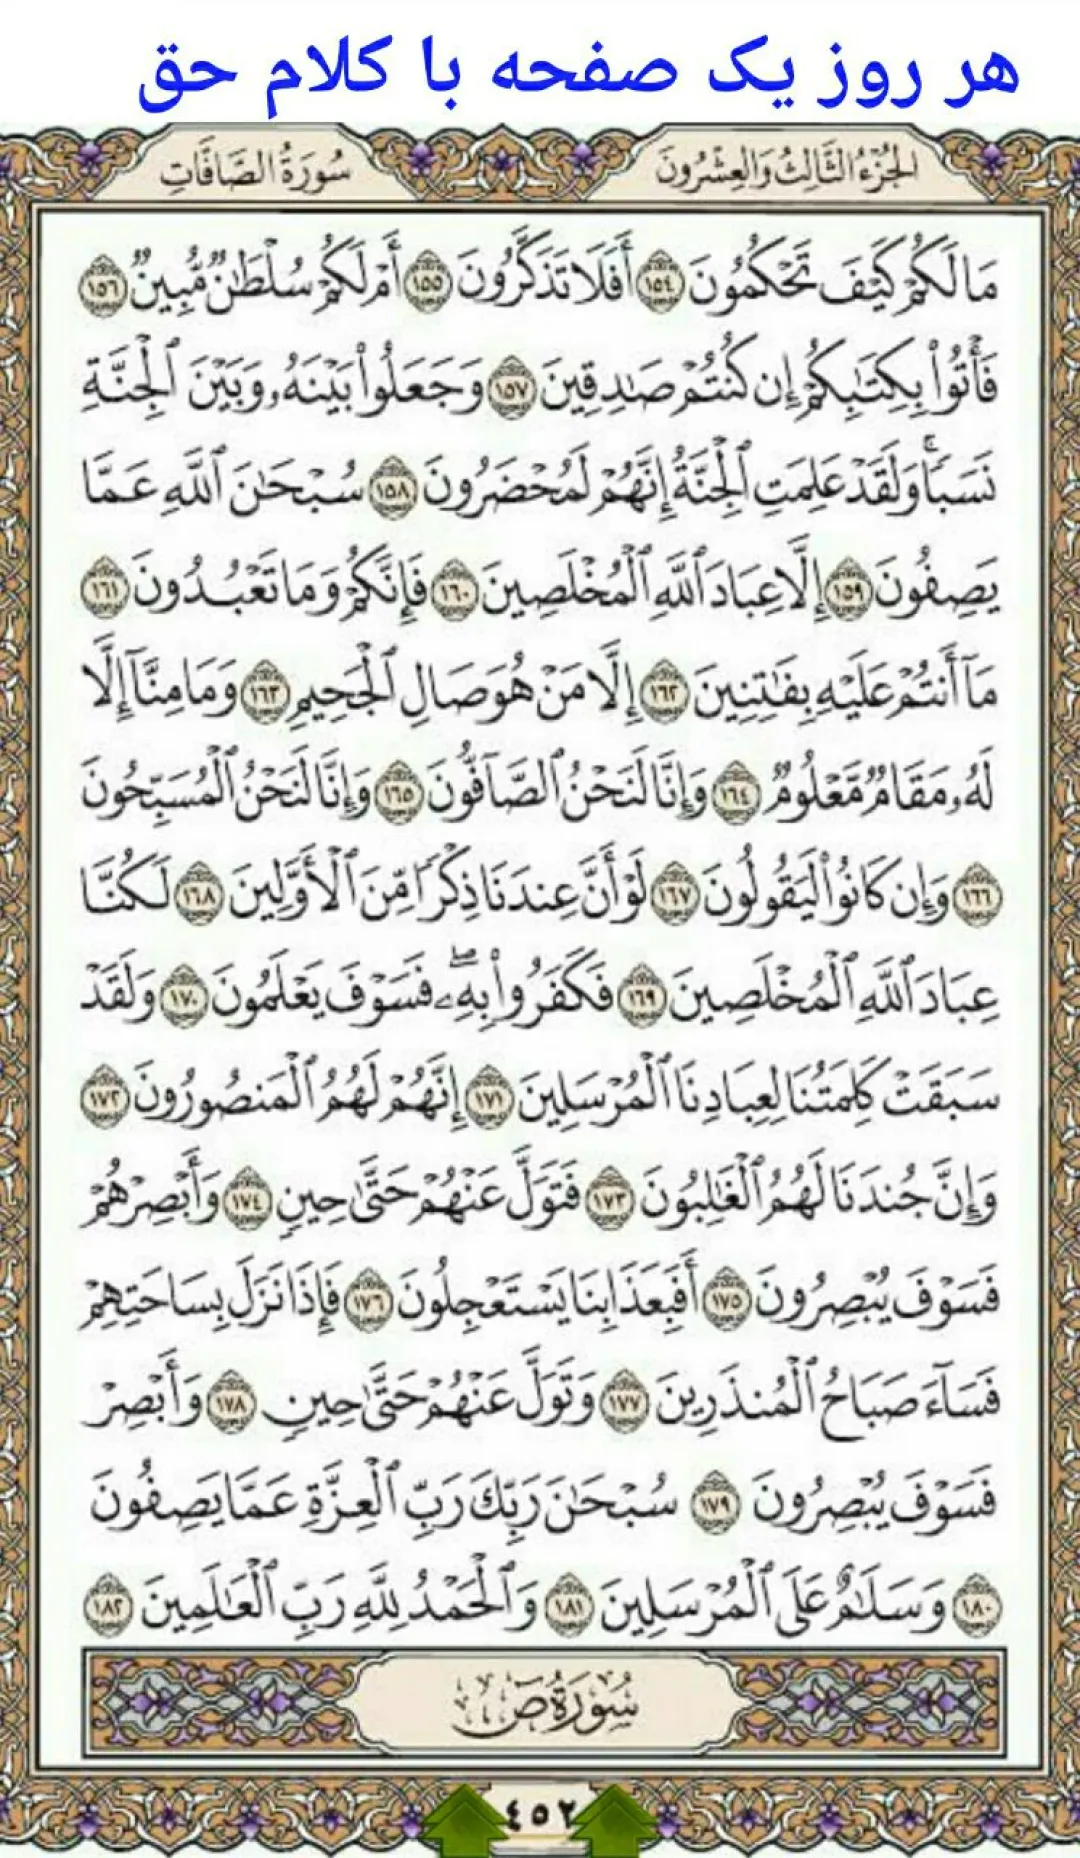 هر روز یک صفحه با کلام حق
الجُزْءُ الثَّالِثُ وَالعِشْرُونَ
سُورَةُ الصَّافَّاتِ
مَا لَكُمْ كَيْفَ تَحْكُمُونَ ١٥٤ أَفَلَا تَذَكَّرُونَ ١٥٥ أَمْ لَكُمْ سُلْطَٰنٌ مُّبِينٌ ١٥٦
فَأْتُوا۟ بِكِتَٰبِكُمْ إِن كُنتُمْ صَٰدِقِينَ ١٥٧ وَجَعَلُوا۟ بَيْنَهُۥ وَبَيْنَ ٱلْجِنَّةِ
نَسَبًا ۚ وَلَقَدْ عَلِمَتِ ٱلْجِنَّةُ إِنَّهُمْ لَمُحْضَرُونَ ١٥٨ سُبْحَٰنَ ٱللَّهِ عَمَّا
يَصِفُونَ ١٥٩ إِلَّا عِبَادَ ٱللَّهِ ٱلْمُخْلَصِينَ ١٦٠ فَإِنَّكُمْ وَمَا تَعْبُدُونَ ١٦١
مَآ أَنتُمْ عَلَيْهِ بِفَٰتِنِينَ ١٦٢ إِلَّا مَنْ هُوَ صَالِ ٱلْجَحِيمِ ١٦٣ وَمَا مِنَّآ إِلَّا
لَهُۥ مَقَامٌ مَّعْلُومٌ ١٦٤ وَإِنَّا لَنَحْنُ ٱلصَّآفُّونَ ١٦٥ وَإِنَّا لَنَحْنُ ٱلْمُسَبِّحُونَ
١٦٦ وَإِن كَانُوا۟ لَيَقُولُونَ ١٦٧ لَوْ أَنَّ عِندَنَا ذِكْرًا مِّنَ ٱلْأَوَّلِينَ ١٦٨ لَكُنَّا
عِبَادَ ٱللَّهِ ٱلْمُخْلَصِينَ ١٦٩ فَكَفَرُوا۟ بِهِۦ ۖ فَسَوْفَ يَعْلَمُونَ ١٧٠ وَلَقَدْ
سَبَقَتْ كَلِمَتُنَا لِعِبَادِنَا ٱلْمُرْسَلِينَ ١٧١ إِنَّهُمْ لَهُمُ ٱلْمَنصُورُونَ ١٧٢
وَإِنَّ جُندَنَا لَهُمُ ٱلْغَٰلِبُونَ ١٧٣ فَتَوَلَّ عَنْهُمْ حَتَّىٰ حِينٍ ١٧٤ وَأَبْصِرْهُمْ
فَسَوْفَ يُبْصِرُونَ ١٧٥ أَفَبِعَذَابِنَا يَسْتَعْجِلُونَ ١٧٦ فَإِذَا نَزَلَ بِسَاحَتِهِمْ
فَسَآءَ صَبَاحُ ٱلْمُنذَرِينَ ١٧٧ وَتَوَلَّ عَنْهُمْ حَتَّىٰ حِينٍ ١٧٨ وَأَبْصِرْ
فَسَوْفَ يُبْصِرُونَ ١٧٩ سُبْحَٰنَ رَبِّكَ رَبِّ ٱلْعِزَّةِ عَمَّا يَصِفُونَ
١٨٠ وَسَلَٰمٌ عَلَى ٱلْمُرْسَلِينَ ١٨١ وَٱلْحَمْدُ لِلَّهِ رَبِّ ٱلْعَٰلَمِينَ ١٨٢
سُورَةُ ص
٤٥٢